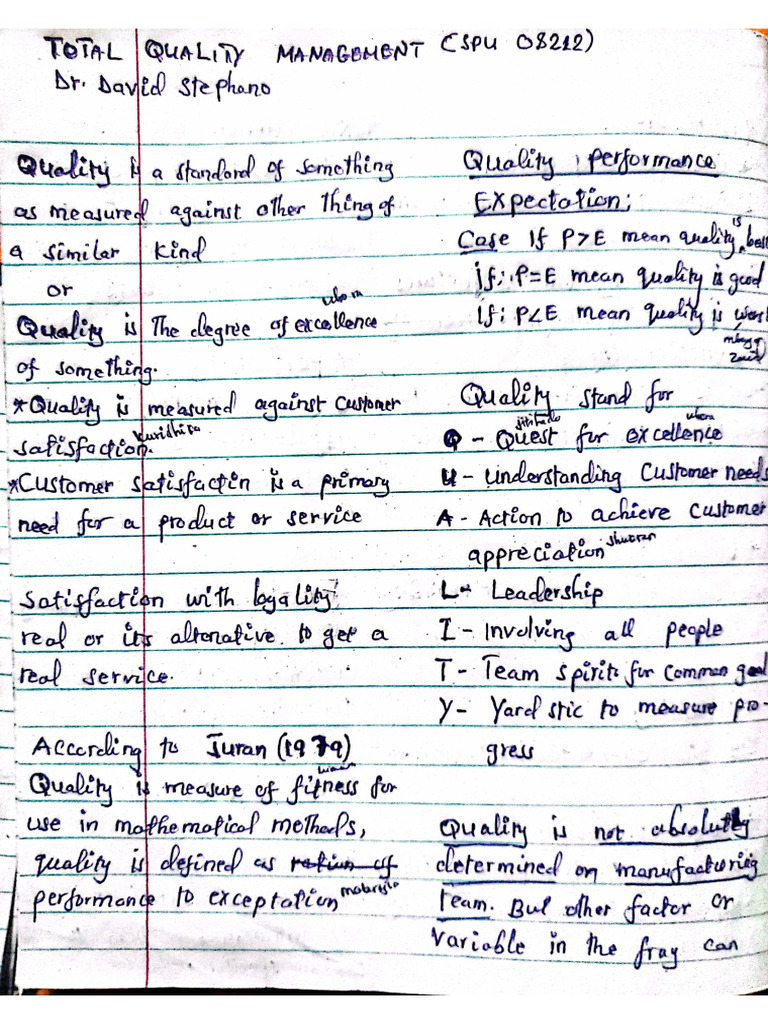 TOTAL QUALITY MANAGEMENT (SPU 08212)
Dr. David Stephano
Quality is a standard of something
as measured against other thing of
a similar kind
or
ubora
Quality is The degree of excellence
of something.
*Quality is measured against customer
satisfaction. kurishisa
*Customer satisfactin is a primary
need for a product or service
satisfaction with logality
real or its altenative to get a
real service.
According to Juran (1979)
Quality is measure of fitness for
use in mathematical methods,
quality is defined as ration of
performance to exceptation matarajio
Quality, performance
Expectation;
Case If P>E mean quality is best
if; P=E mean quality is good
If; P<E mean quality is worst
Quality stand for
Q - Quest for excellence
ubora
U - Understanding Customer needs
A - Action to achieve customer
appreciation
L - Leadership
I - Involving all people
T - Team spirits for common goal
Y - Yard stic to measure pro-
gress
Quality is not absolutly
determined on manufacturing
team. But other factor or
variable in the fray can